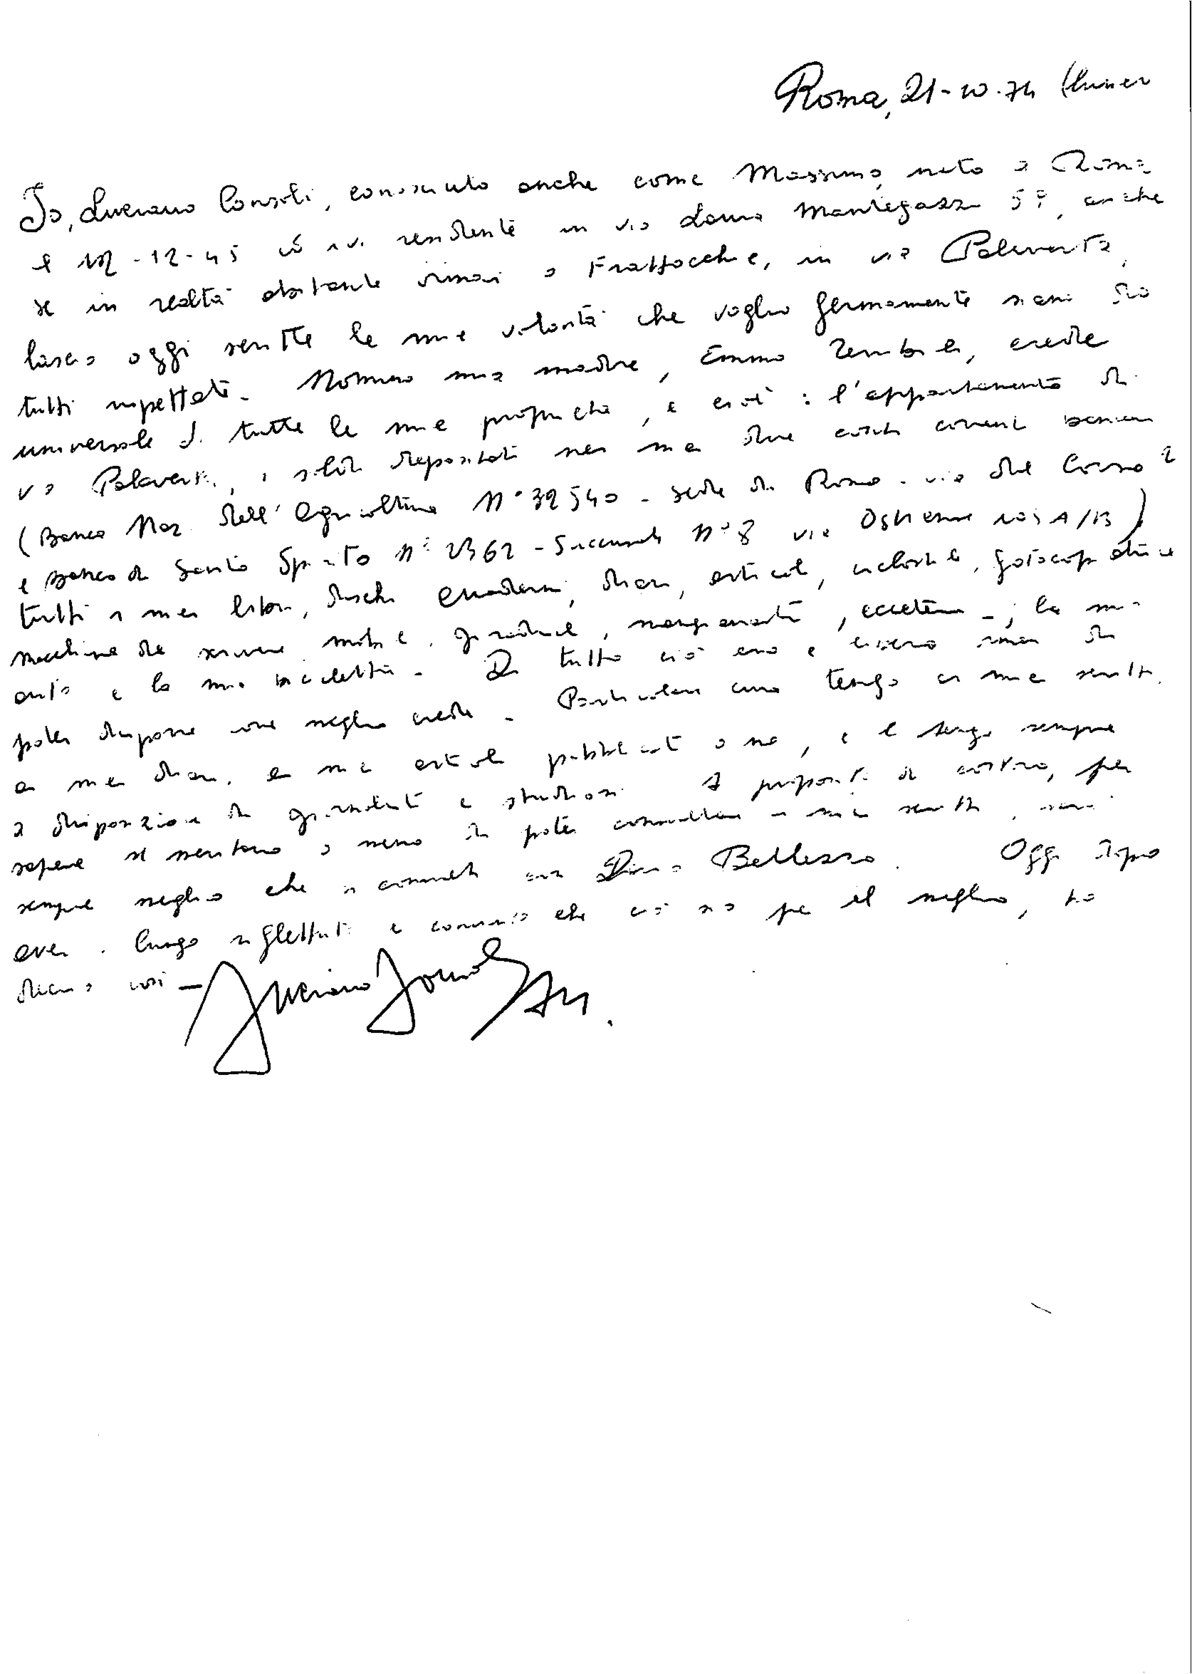 Roma, 21-10-74
Io, Luciano Consoli, conosciuto anche come Massimo, nato a Roma
il 12-12-45 ed ivi residente in via Laura Mantegazza 59, anche
se in realtà abitante ormai a Frattocchie, in via Palaverta,
lascio oggi scritte le mie volontà che voglio fermamente siano da
tutti rispettate. Nomino mia madre, Emma, erede
universale di tutte le mie proprietà, e cioè: l'appartamento di
via Palaverta, i soldi depositati nei miei due conti correnti bancari
(Banca Naz. dell'Agricoltura N° 32540 - sede di Roma - via del Corso
e Banco di Santo Spirito N° 2362 - Succursale N° 8 via Ostiense 105 A/B)
tutti i miei libri, dischi, quaderni, diari, articoli, ciclostile, fotocopiatrice
macchine da scrivere, mobili, giradischi, mangianastri, eccetera -; la mia
auto e la mia bicicletta. Di tutto ciò essa è libera di
poter disporre come meglio crede. Particolare cura tengo ai miei scritti,
ai miei diari, ai miei articoli pubblicati o no, e li tenga sempre
a disposizione di giornalisti e studiosi. A proposito di costoro, per
sapere se meritano o meno di poter consultare i miei scritti, sarà
sempre meglio che si consulti con Dario Bellezza. Oggi, dopo
aver lungo riflettuto e convinto che ciò sia per il meglio, ho
deciso così -
Luciano Consoli